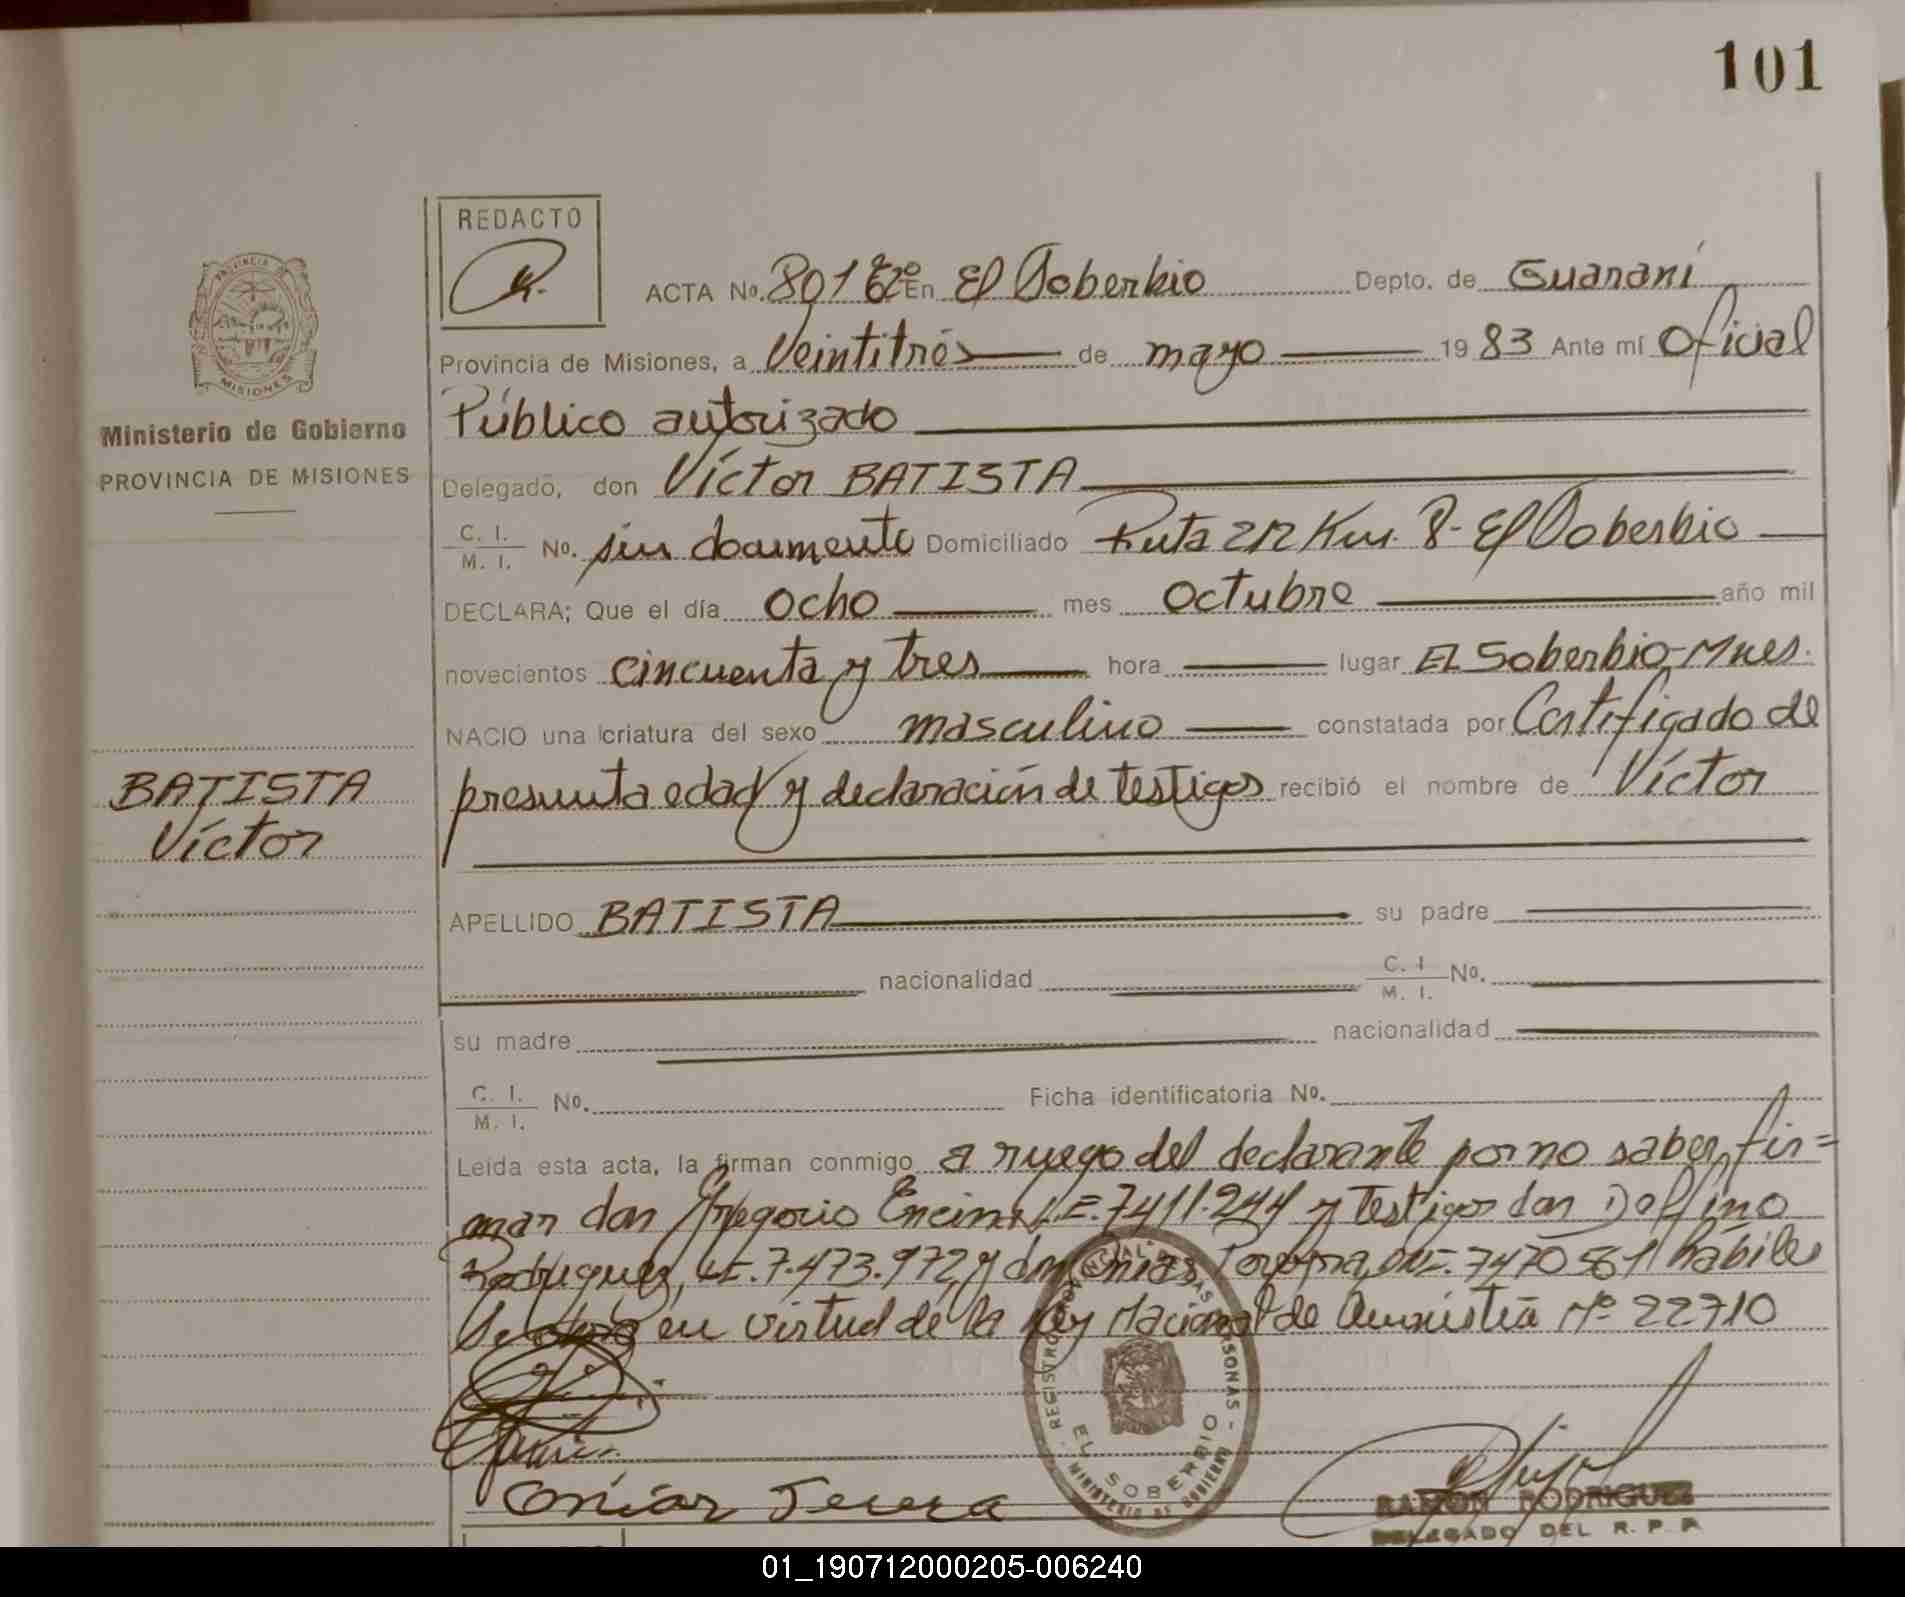 101
REDACTO
PROVINCIA DE MISIONES
ACTA No. 801 En El Soberbio Depto. de Guaraní
Provincia de Misiones, a Veintitrés de mayo 1983 Ante mí Oficial
Público autorizado
Ministerio de Gobierno
PROVINCIA DE MISIONES
Delegado, don Víctor BATISTA
C. I. M. I. No. sin documento Domiciliado Ruta 212 Km. 8- El Soberbio
DECLARA; Que el día Ocho mes Octubre año mil
novecientos cincuenta y tres hora lugar El Soberbio-Mnes.
NACIO una criatura del sexo masculino constatada por Certificado de
presunta edad y declaración de testigos recibió el nombre de Víctor
BATISTA
Víctor
APELLIDO BATISTA su padre
nacionalidad C. I. M. I. No.
su madre nacionalidad
C. I. M. I. No. Ficha identificatoria No.
Leída esta acta, la firman conmigo a ruego del declarante por no saber fir=
mar don Gregorio Encina L.E. 7411.244 y testigos don Dolfino
Rodriguez, L.E. 7.473.972, y don 7470561 hábiles
en virtud de la Ley Nacional de Amnistía Nº 22710
REGISTRO PROVINCIAL DE LAS PERSONAS -
EL SOBERBIO
MINISTERIO DE GOBIERNO
RAMON RODRIGUEZ
DELEGADO DEL R. P. P.
01_190712000205-006240